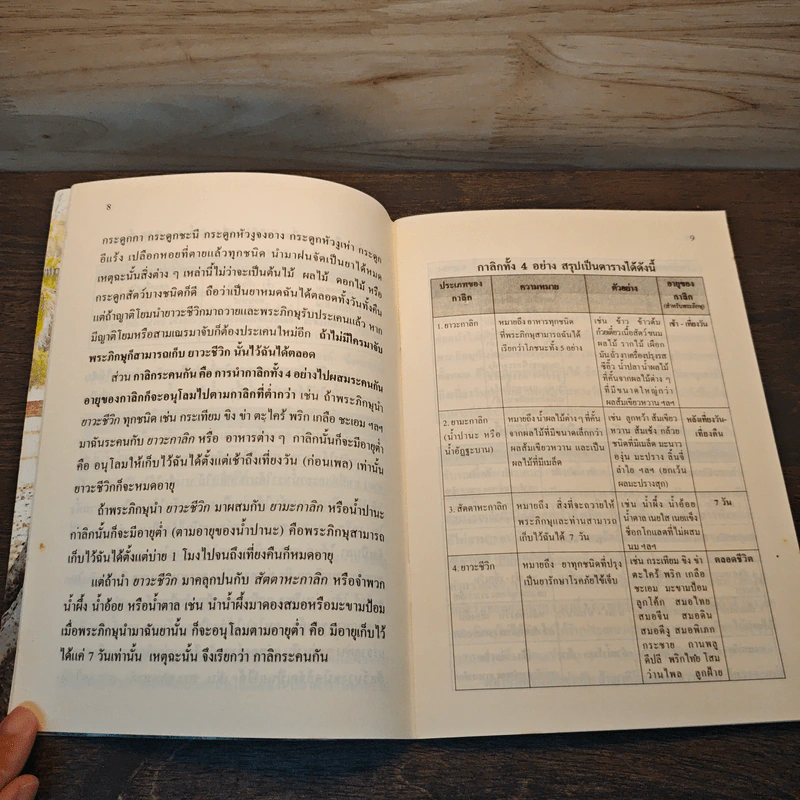 8
กระดูกกา กระดูกชะนี กระดูกหัวงูจงอาง กระดูกหัวงูเห่า กระดูก
อีแร้ง เปลือกหอยที่ตายแล้วทุกชนิด นำมาฝนจัดเป็นยาได้หมด
เหตุฉะนั้นสิ่งต่าง ๆ เหล่านี้ไม่ว่าจะเป็นต้นไม้ ผลไม้ ดอกไม้ หรือ
กระดูกสัตว์บางชนิดก็ดี ถือว่าเป็นยาหมดฉันได้ตลอดทั้งวันทั้งคืน
แต่ถ้าญาติโยมนำยาวะชีวิกมาถวายและพระภิกษุรับประเคนแล้ว หาก
มีญาติโยมหรือสามเณรมาจับก็ต้องประเคนใหม่อีก ถ้าไม่มีใครมาจับ
พระภิกษุก็สามารถเก็บ ยาวะชีวิก นั้นไว้ฉันได้ตลอด
ส่วน กาลิกระคนกัน คือ การนำกาลิกทั้ง 4 อย่างไปผสมระคนกัน
อายุของกาลิกก็จะอนุโลมไปตามกาลิกที่ต่ำกว่า เช่น ถ้าพระภิกษุนำ
ยาวะชีวิก ทุกชนิด เช่น กระเทียม ขิง ข่า ตะไคร้ พริก เกลือ ชะเอม ฯลฯ
มาฉันระคนกับ ยาวะกาลิก หรือ อาหารต่าง ๆ กาลิกนั้นก็จะมีอายุต่ำ
คือ อนุโลมให้เก็บไว้ฉันได้ตั้งแต่เช้าถึงเที่ยงวัน (ก่อนเพล) เท่านั้น
ยาวะชีวิกก็จะหมดอายุ
ถ้าพระภิกษุนำ ยาวะชีวิก มาผสมกับ ยามะกาลิก หรือน้ำปานะ
กาลิกนั้นก็จะมีอายุต่ำ (ตามอายุของน้ำปานะ) คือพระภิกษุสามารถ
เก็บไว้ฉันได้ตั้งแต่บ่าย 1 โมงไปจนถึงเที่ยงคืนก็หมดอายุ
แต่ถ้านำ ยาวะชีวิก มาคลุกปนกับ สัตตาหะกาลิก หรือจำพวก
น้ำผึ้ง น้ำอ้อย หรือน้ำตาล เช่น นำน้ำผึ้งมาดองสมอหรือมะขามป้อม
เมื่อพระภิกษุนำมาฉันยานั้น ก็จะอนุโลมตามอายุต่ำ คือ มีอายุเก็บไว้
ได้แค่ 7 วันเท่านั้น เหตุฉะนั้น จึงเรียกว่า กาลิกระคนกัน
9
กาลิกทั้ง 4 อย่าง สรุปเป็นตารางได้ดังนี้
ประเภทของ
กาลิก
ความหมาย
ตัวอย่าง
อายุของ
กาลิก
(สำหรับพระภิกษุ)
1. ยาวะกาลิก
หมายถึง อาหารทุกชนิด
ที่พระภิกษุสามารถฉันได้
เรียกว่าโภชนะทั้ง 5 อย่าง
เช่น ข้าว ข้าวต้ม
ก๋วยเตี๋ยวเนื้อสัตว์ขนม
ผลไม้ รากไม้ เผือก
มัน ถั่ว งาเครื่องปรุงรส
ซีอิ๊ว น้ำปลา น้ำผลไม้
ที่คั้นจากผลไม้ต่าง ๆ
ที่มีขนาดใหญ่กว่า
ผลส้มเขียวหวาน ฯลฯ
เช้า - เที่ยงวัน
2. ยามะกาลิก
(น้ำปานะ หรือ
น้ำอัฏฐะบาน)
หมายถึง น้ำผลไม้ต่าง ๆ ที่คั้น
จากผลไม้ที่มีขนาดเล็กกว่า
ผลส้มเขียวหวาน และเป็น
ผลไม้ที่มีเมล็ด
เช่น ลูกหว้า ส้มเขียว
หวาน ส้มเช้ง กล้วย
ชนิดที่มีเมล็ด มะนาว
องุ่น มะปราง ลิ้นจี่
ลำไย ฯลฯ (ยกเว้น
ผลมะปรางสุก)
หลังเที่ยงวัน-
เที่ยงคืน
3. สัตตาหะกาลิก
หมายถึง สิ่งที่จะถวายให้
พระภิกษุและท่านสามารถ
เก็บไว้ฉันได้ 7 วัน
เช่น น้ำผึ้ง น้ำอ้อย
น้ำตาล เนยใส เนยแข็ง
ช็อกโกแลตที่ไม่ผสม
นม ฯลฯ
7 วัน
4. ยาวะชีวิก
หมายถึง ยาทุกชนิดที่ปรุง
เป็นยารักษาโรคภัยไข้เจ็บ
เช่น กระเทียม ขิง ข่า
ตะไคร้ พริก เกลือ
ชะเอม มะขามป้อม
ลูกโค้ก สมอไทย
สมอจีน สมอดิน
สมอดีงู สมอพิเภก
กระชาย กานพลู
ดีปลี พริกไทย โสม
ว่านไพล ลูกฝ้าย
ตลอดชีวิต